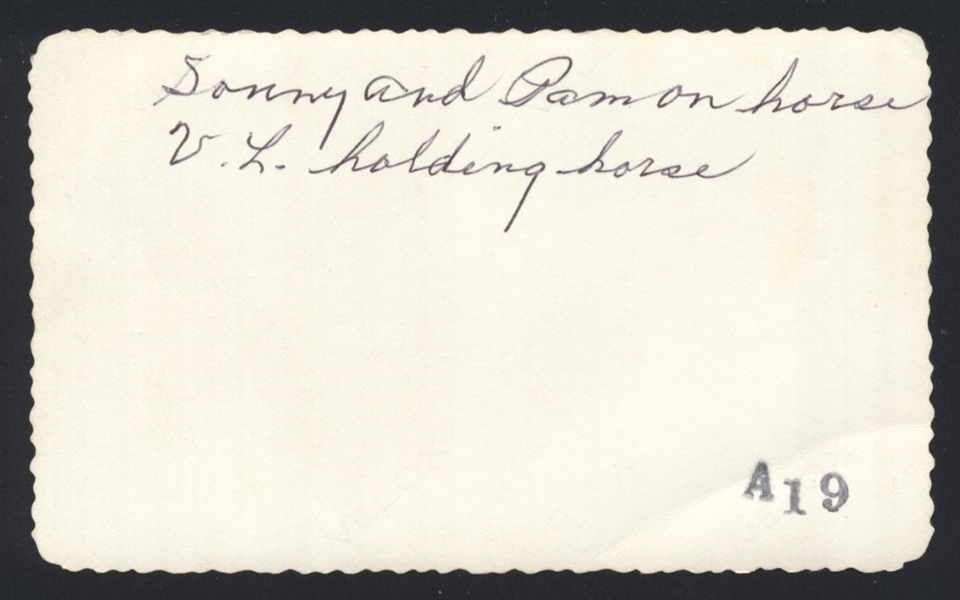 Sonny and Pam on horse
V. L. holding horse
A19